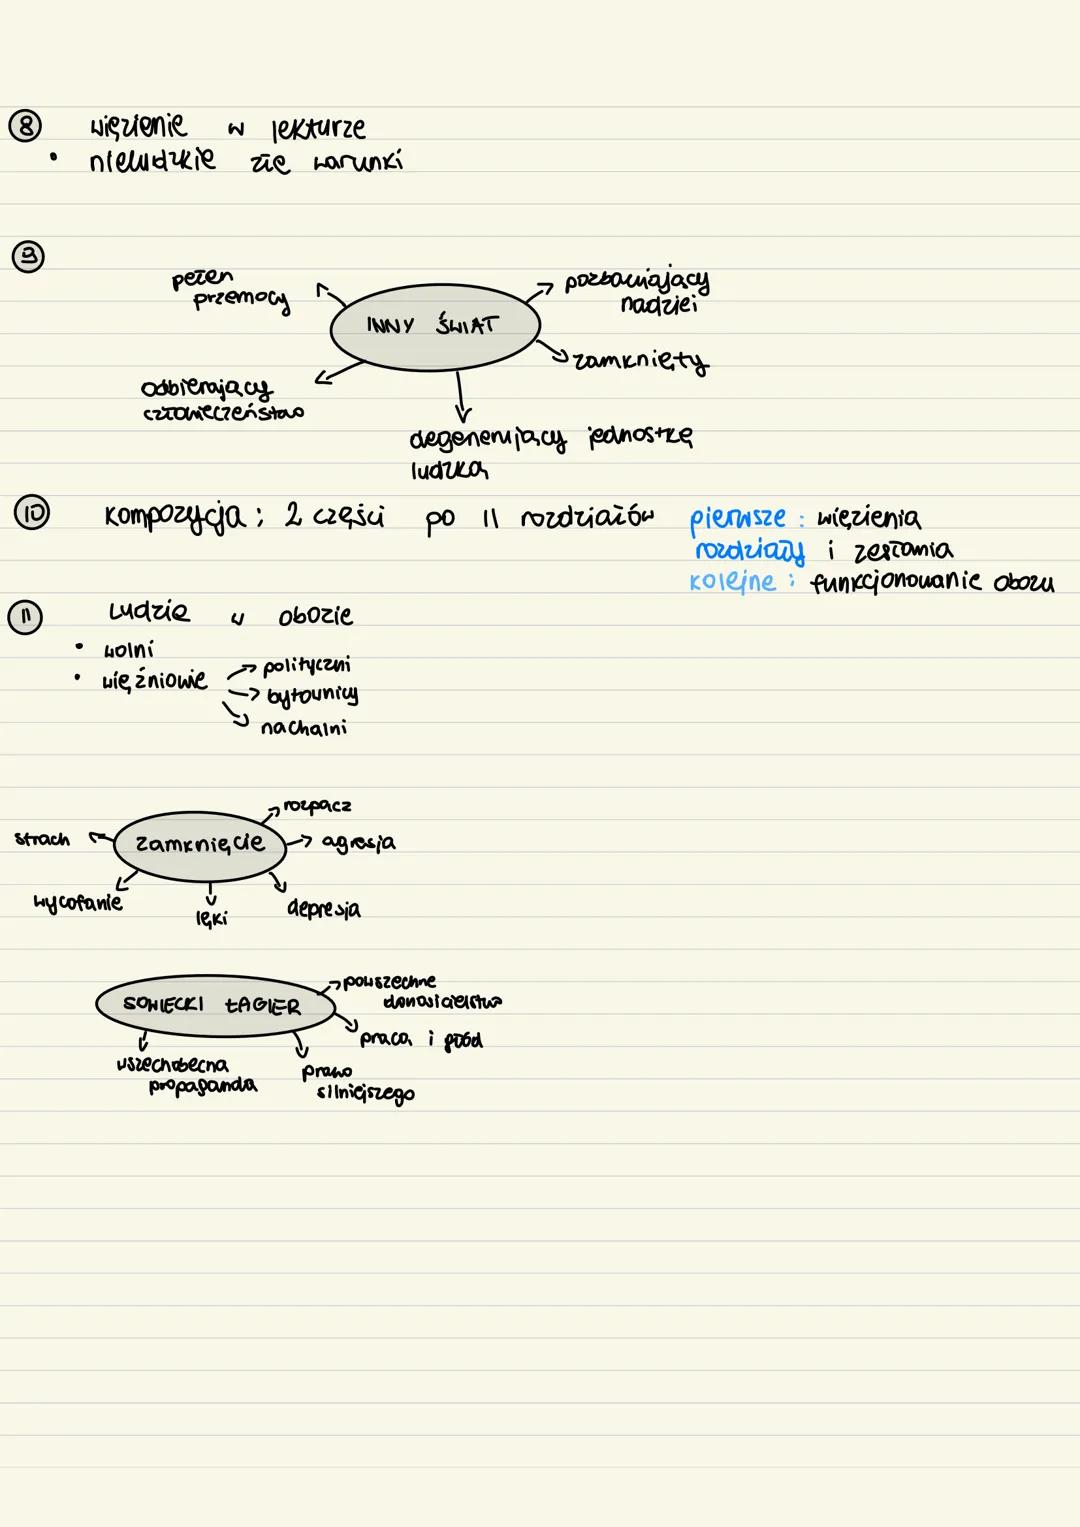 8 więzienie w lekturze
• nieludzkie złe warunki
9
pełen
przemocy
pozbawiający
nadziei
INNY ŚWIAT
zamknięty
odbierający
człowieczeństwo
degenerujący jednostkę
ludzką
10 kompozycja; 2 części po 11 rozdziałów
pierwsze : więzienia
rozdziały i zesłania
kolejne : funkcjonowanie obozu
11 Ludzie w obozie
• wolni
• więźniowie
polityczni
bytownicy
nachalni
rozpacz
strach
zamknięcie
agresja
wycofanie
lęki
depresja
SOWIECKI ŁAGIER
powszechne
donosicielstwo
praca i głód
wszechobecna
propaganda
prawo
silniejszego